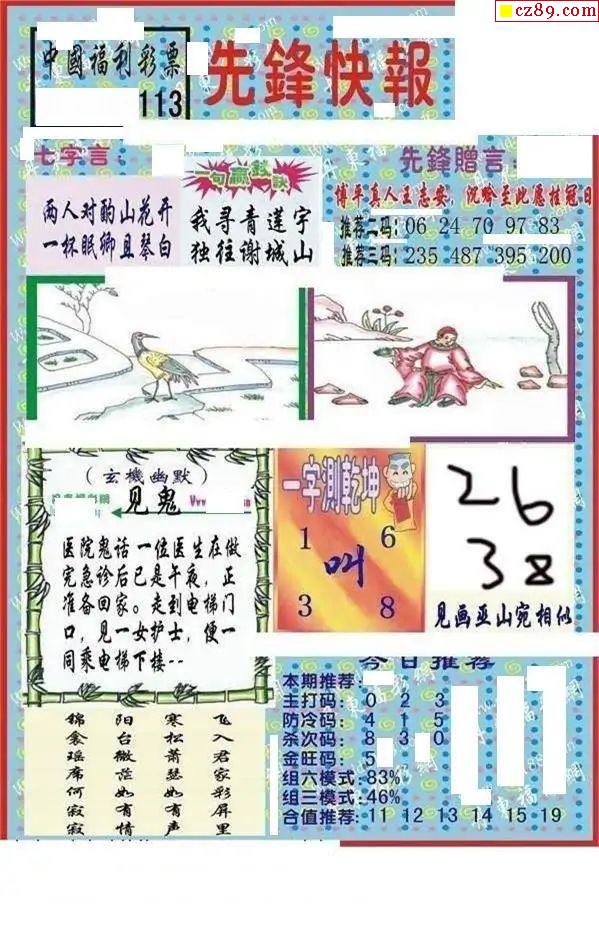 cz89.com
中國福利彩票
113
先鋒快報
七字言：
两人对酌山花开
一杯眠卿且琴白
一句赢钱诀
我寻青莲宇
独往谢城山
先鋒贈言：
博平真人王志安，沉吟至此愿挂冠日
推荐二码：06 24 70 97 83
推荐三码：235 487 395 200
（玄機幽默）
见鬼
医院鬼话 一位医生在做
完急诊后已是午夜，正
准备回家。走到电梯门
口，见一女护士，便一
同乘电梯下楼--
一字測乾坤
1 6
叫
3 8
26
38
见画巫山宛相似
今日推荐
本期推荐：
主打码：0 2 3
防冷码：4 1 5
杀次码：8 3 0
金旺码：5
组六模式：83%
组三模式：46%
合值推荐：11 12 13 14 15 19
锦衾瑶席何寂寂
阳台微茫如有情
寒松萧瑟如有声
飞入君家彩屏里